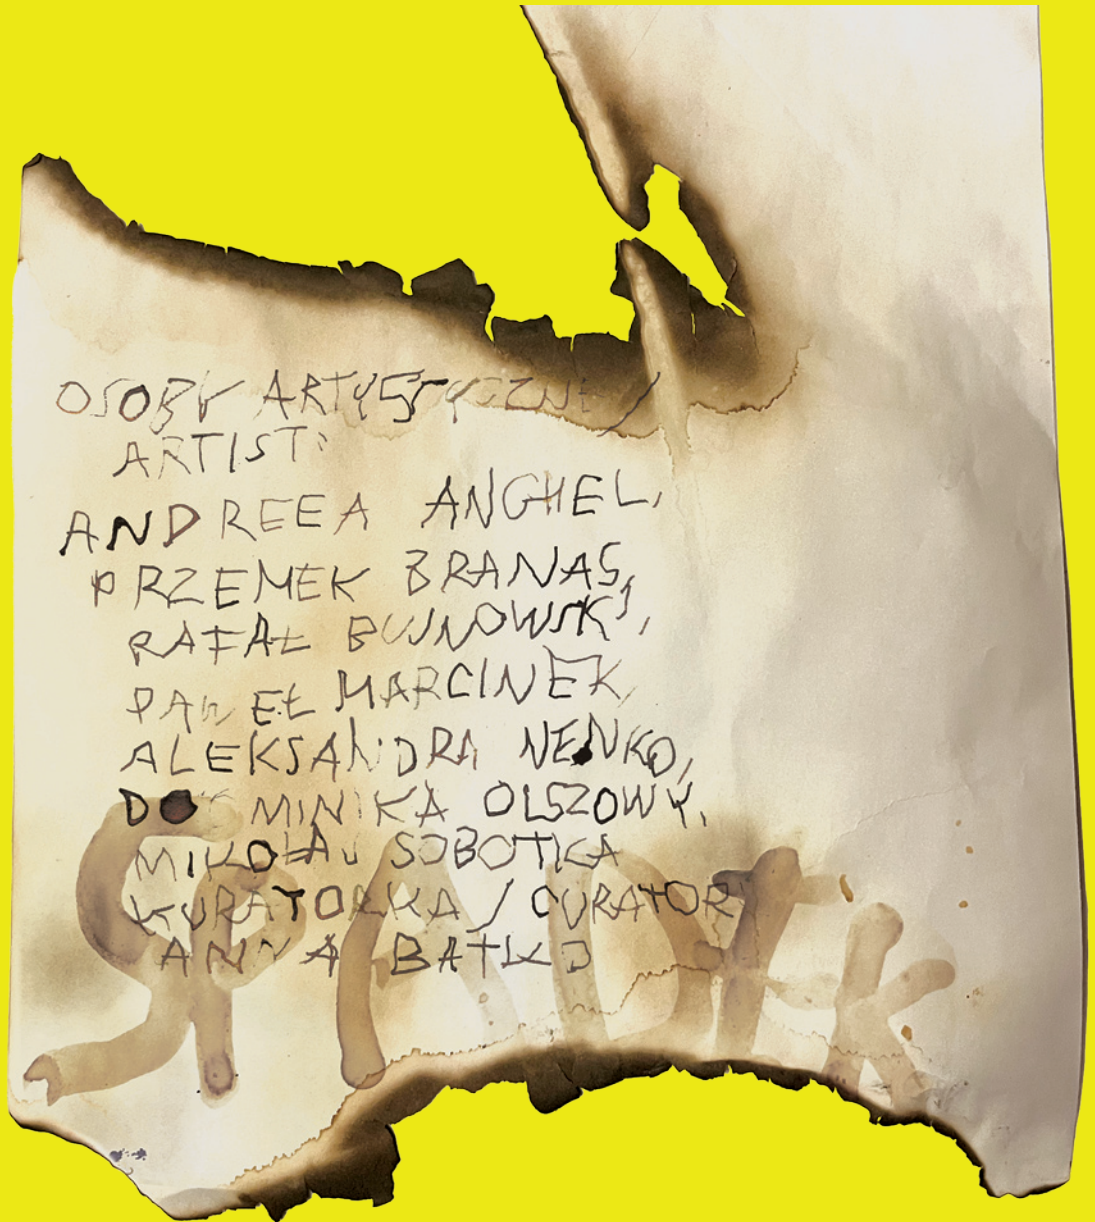 OSOBY ARTYSTYCZNE /
ARTISTS
ANDREEA ANGHEL,
PRZEMEK BRANAS,
RAFAŁ BUJNOWSKI,
PAWEŁ MARCINEK,
ALEKSANDRA NENKO,
DOMINIKA OLSZOWY,
MIKOŁAJ SOBOTKA
KURATORKA / CURATOR
ANNA BATKO
SPADEK